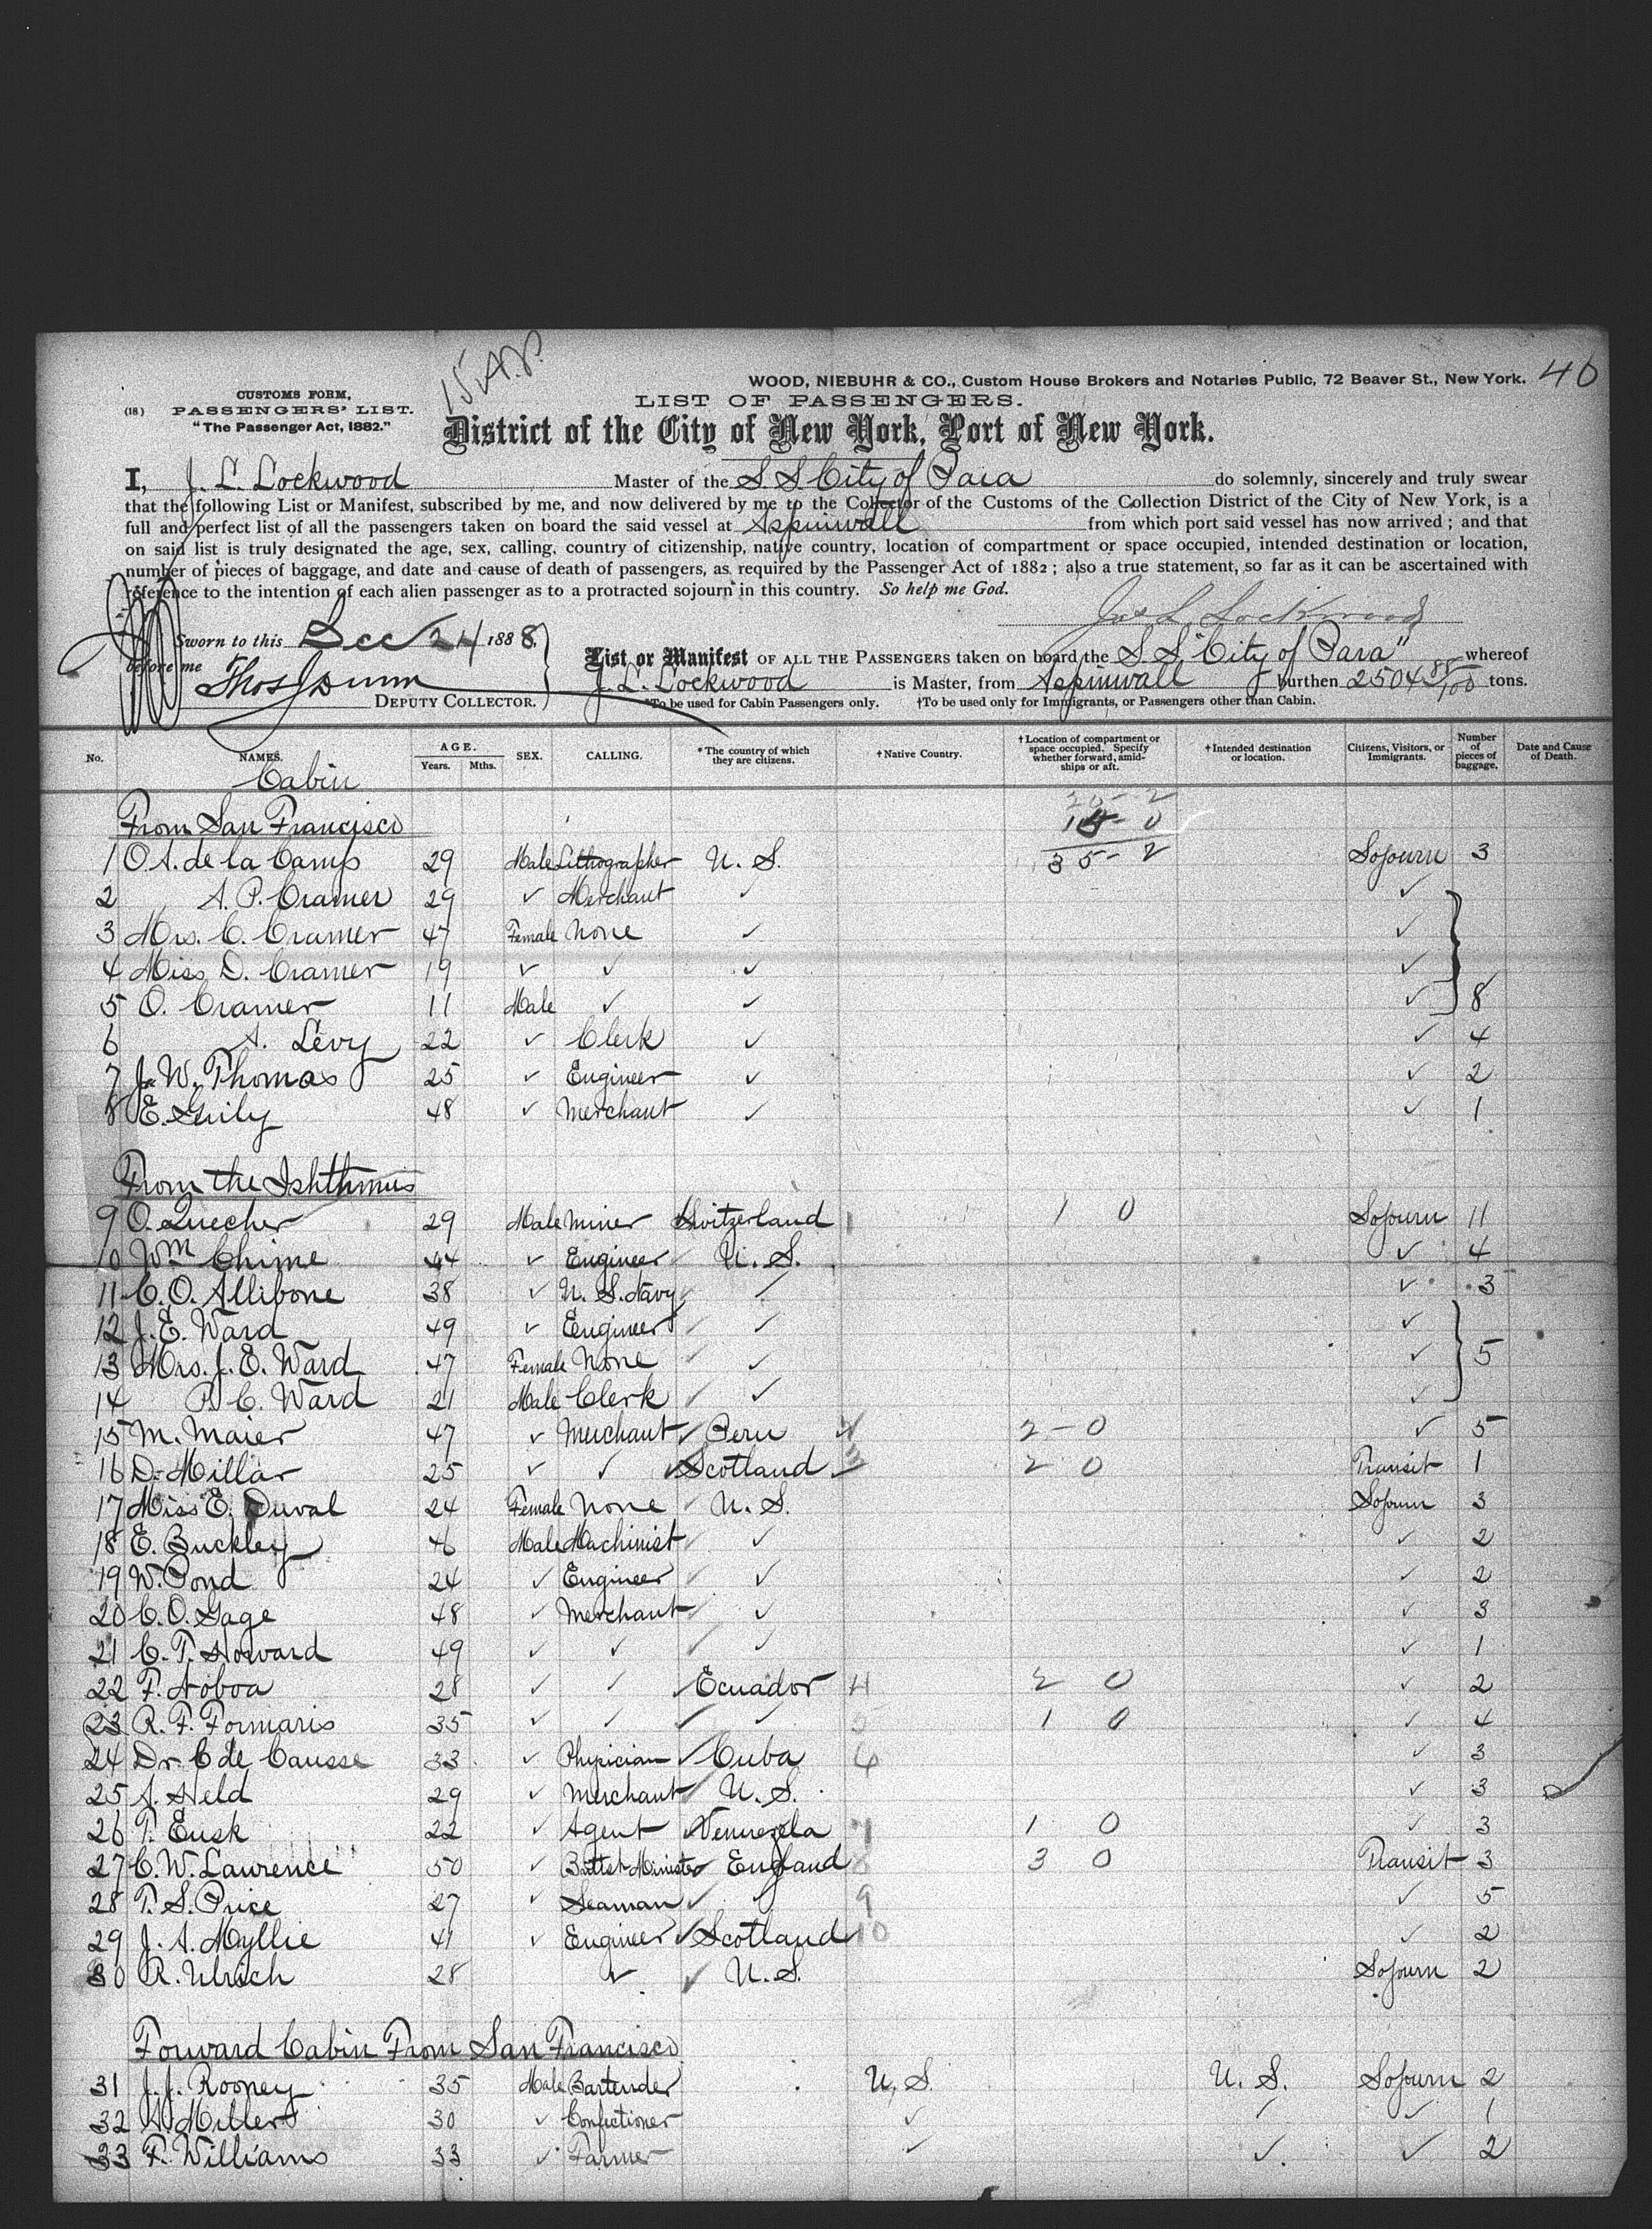 15 A.P.
WOOD, NIEBUHR & CO., Custom House Brokers and Notaries Public, 72 Beaver St., New York. 40
CUSTOMS FORM,
LIST OF PASSENGERS.
(18) PASSENGERS' LIST.
"The Passenger Act, 1882."
District of the City of New York, Port of New York.
I, J. L. Lockwood Master of the S S City of Para do solemnly, sincerely and truly swear
that the following List or Manifest, subscribed by me, and now delivered by me to the Collector of the Customs of the Collection District of the City of New York, is a
full and perfect list of all the passengers taken on board the said vessel at Aspinwall from which port said vessel has now arrived; and that
on said list is truly designated the age, sex, calling, country of citizenship, native country, location of compartment or space occupied, intended destination or location,
number of pieces of baggage, and date and cause of death of passengers, as required by the Passenger Act of 1882; also a true statement, so far as it can be ascertained with
reference to the intention of each alien passenger as to a protracted sojourn in this country. So help me God.
Jas L. Lockwood
Sworn to this Dec 24 1888.
before me
List or Manifest OF ALL THE PASSENGERS taken on board the S. S. "City of Para" whereof
Thos Dunn
J. L. Lockwood is Master, from Aspinwall burthen 2504 88/100 tons.
DEPUTY COLLECTOR.
*To be used for Cabin Passengers only. †To be used only for Immigrants, or Passengers other than Cabin.
No. NAMES. AGE. Years. Mths. SEX. CALLING. *The country of which they are citizens. †Native Country. †Location of compartment or space occupied. Specify whether forward, amidships or aft. †Intended destination or location. Citizens, Visitors, or Immigrants. Number of pieces of baggage. Date and Cause of Death.
Cabin
20 - 2
From San Francisco 15 - 0
35 - 2
1 O A. de la Camp 29 Male Lithographer U. S. Sojourn 3
2 A. P. Cramer 29 ✓ Merchant ✓ ✓
3 Mrs. C. Cramer 47 Female None ✓ ✓
4 Miss D. Cramer 19 ✓ ✓ ✓ ✓
5 O. Cramer 11 Male ✓ ✓ ✓ 8
6 A. Levy 22 ✓ Clerk ✓ ✓ 4
7 J. W. Thomas 25 ✓ Engineer ✓ ✓ 2
8 E. 48 ✓ Merchant ✓ ✓ 1
From the Ishthmus
9 O. Quecher 29 Male Miner Switzerland 1 1 0 Sojourn 11
10 Wm Chime 44 ✓ Engineer U. S. ✓ 4
11 C. O. Allibone 38 ✓ U. S. Navy ✓ ✓ 3
12 J. E. Ward 49 ✓ Engineer ✓ ✓
13 Mrs. J. E. Ward 47 Female None ✓ ✓ 5
14 P. C. Ward 21 Male Clerk ✓ ✓
15 M. Maier 47 ✓ Merchant Peru 2 2 - 0 ✓ 5
16 D. Millar 25 ✓ ✓ Scotland 3 2 0 Transit 1
17 Miss E. Duval 24 Female None U. S. Sojourn 3
18 E. Buckley 46 Male Machinist ✓ ✓ 2
19 W. Pond 24 ✓ Engineer ✓ ✓ 2
20 C. O. Gage 48 ✓ Merchant ✓ ✓ 3
21 C. T. Howard 49 ✓ ✓ ✓ ✓ 1
22 F. Noboa 28 ✓ ✓ Ecuador 4 2 0 ✓ 2
23 R. F. Formaris 35 ✓ ✓ ✓ 5 1 0 ✓ 4
24 Dr. C de Causse 33 ✓ Physician Cuba 6 ✓ 3
25 A. Held 29 ✓ Merchant U. S. ✓ 3
26 T. Eusk 22 ✓ Agent Venuezela 7 1 0 ✓ 3
27 C. W. Laurence 50 ✓ England 8 3 0 Transit 3
28 T. S. Price 27 ✓ Seaman ✓ 9 ✓ 5
29 J. A. Myllie 41 ✓ Engineer Scotland 10 ✓ 2
30 R. Ulrich 28 ✓ U. S. Sojourn 2
Forward Cabin From San Francisco
31 J. J. Rooney 35 Male Bartender U. S. U. S. Sojourn 2
32 A. Miller 30 ✓ Confectioner ✓ ✓ ✓ 1
33 F. Williams 33 ✓ Farmer ✓ ✓ ✓ 2